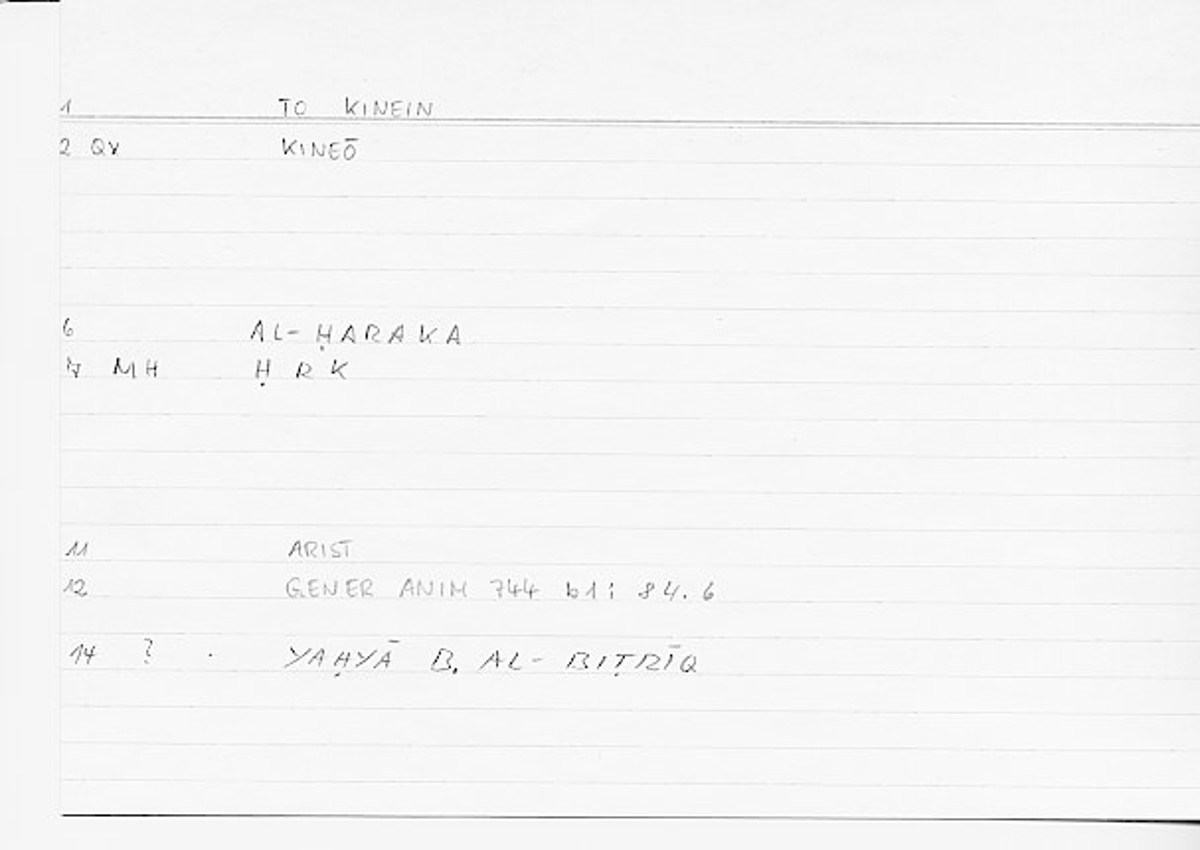 1 TO KINEIN
2 Qv KINEŌ
6 AL-ḤARAKA
7 MH Ḥ R K
11 ARIST
12 GENER ANIM 744 b1; 84.6
14 ? . YAḤYĀ B. AL-BIṬRĪQ